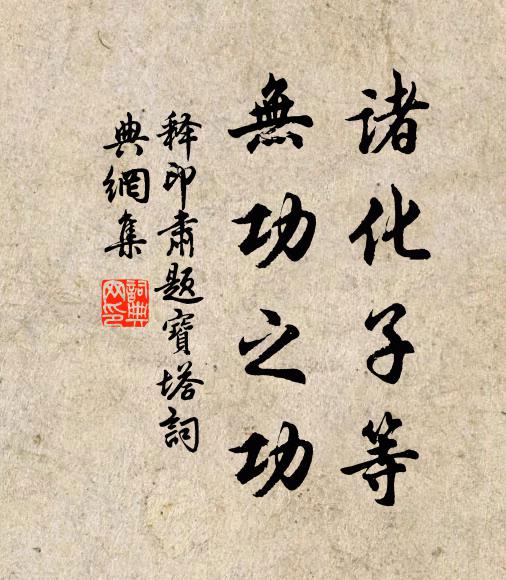 諸化子等
無功之功
释印肃题寶塔詞
典網集
詞典
网印